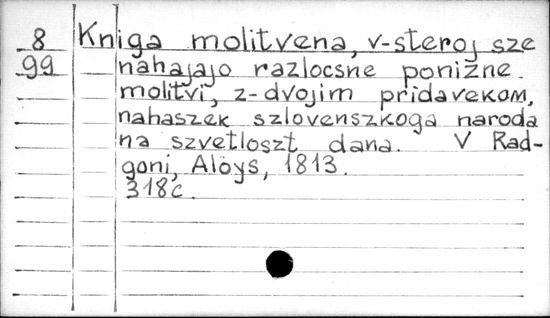 8 Kniga molitvena, v-steroj sze
99 nahajajo razlocsne ponizne
molitvi, z-dvojim pridavekom,
nahaszek szlovenszkoga naroda
na szvetloszt dana. V Rad-
goni, Aloys, 1813.
318c.